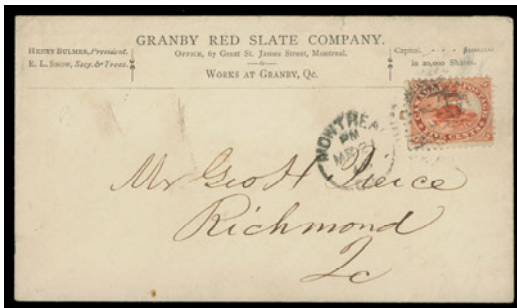 GRANBY RED SLATE COMPANY.
HENRY BULMER, President.
E. L. SNOW, Secy. & Treas.
OFFICE, 67 Great St. James Street, Montreal.
WORKS AT GRANBY, Qc.
Capital,
in 20,000 Shares.
MONTREAL
PM
Mr Geo H Pierce
Richmond
Qc